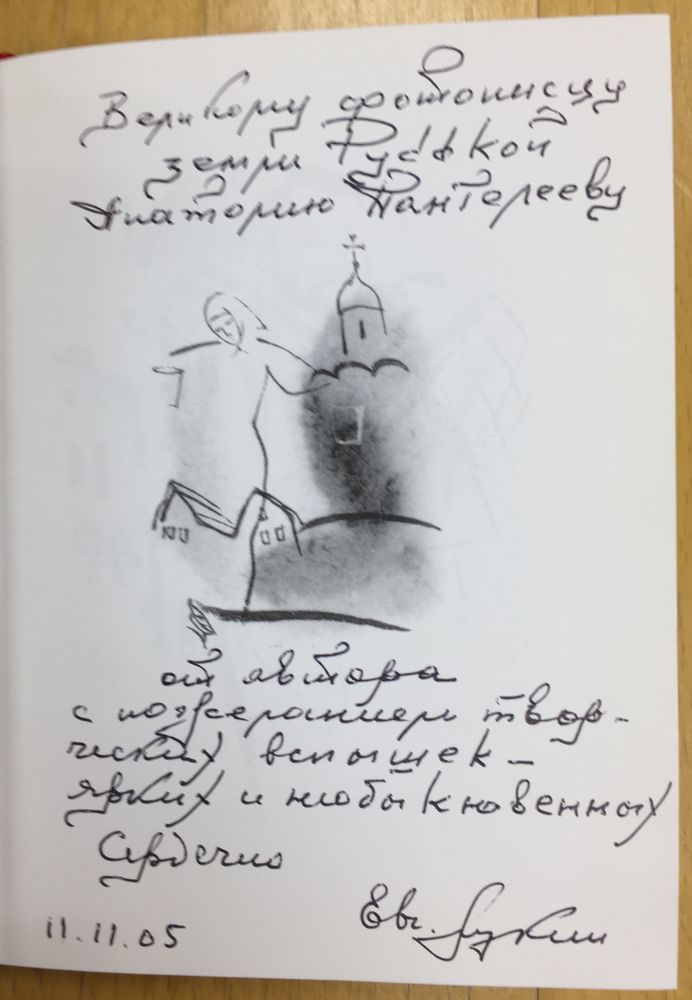 Великому фотописцу
земли Русской
Анатолию Пантелееву
от автора
с пожеланием твор-
ческих вспышек –
ярких и необыкновенных
Сердечно
Евг. Лукин
11.11.05